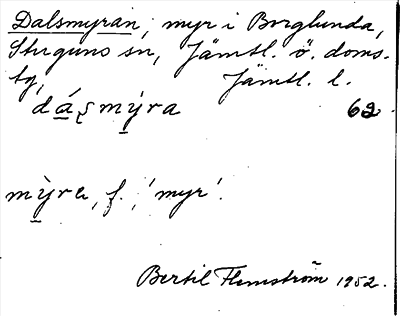 Dalsmyran, myr i Borglunda,
Stuguns sn, Jämtl. ö. doms.
tg, Jämtl. l.
62
mỳra, f., 'myr'.
Bertil Flemström 1952.